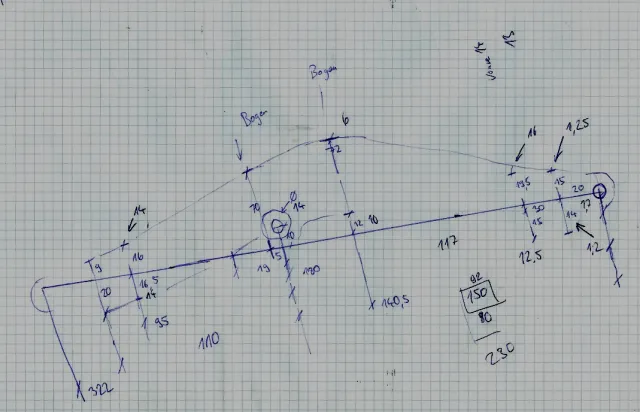 Bogen
Bogen
6
12
16
1,25
14
Ø
14
70
10
9
16
20
16,5
14
95
19
5
180
12
10
140,5
117
19,5
15
20
30
15
14
17
12,5
1,2
110
322
92
150
80
230